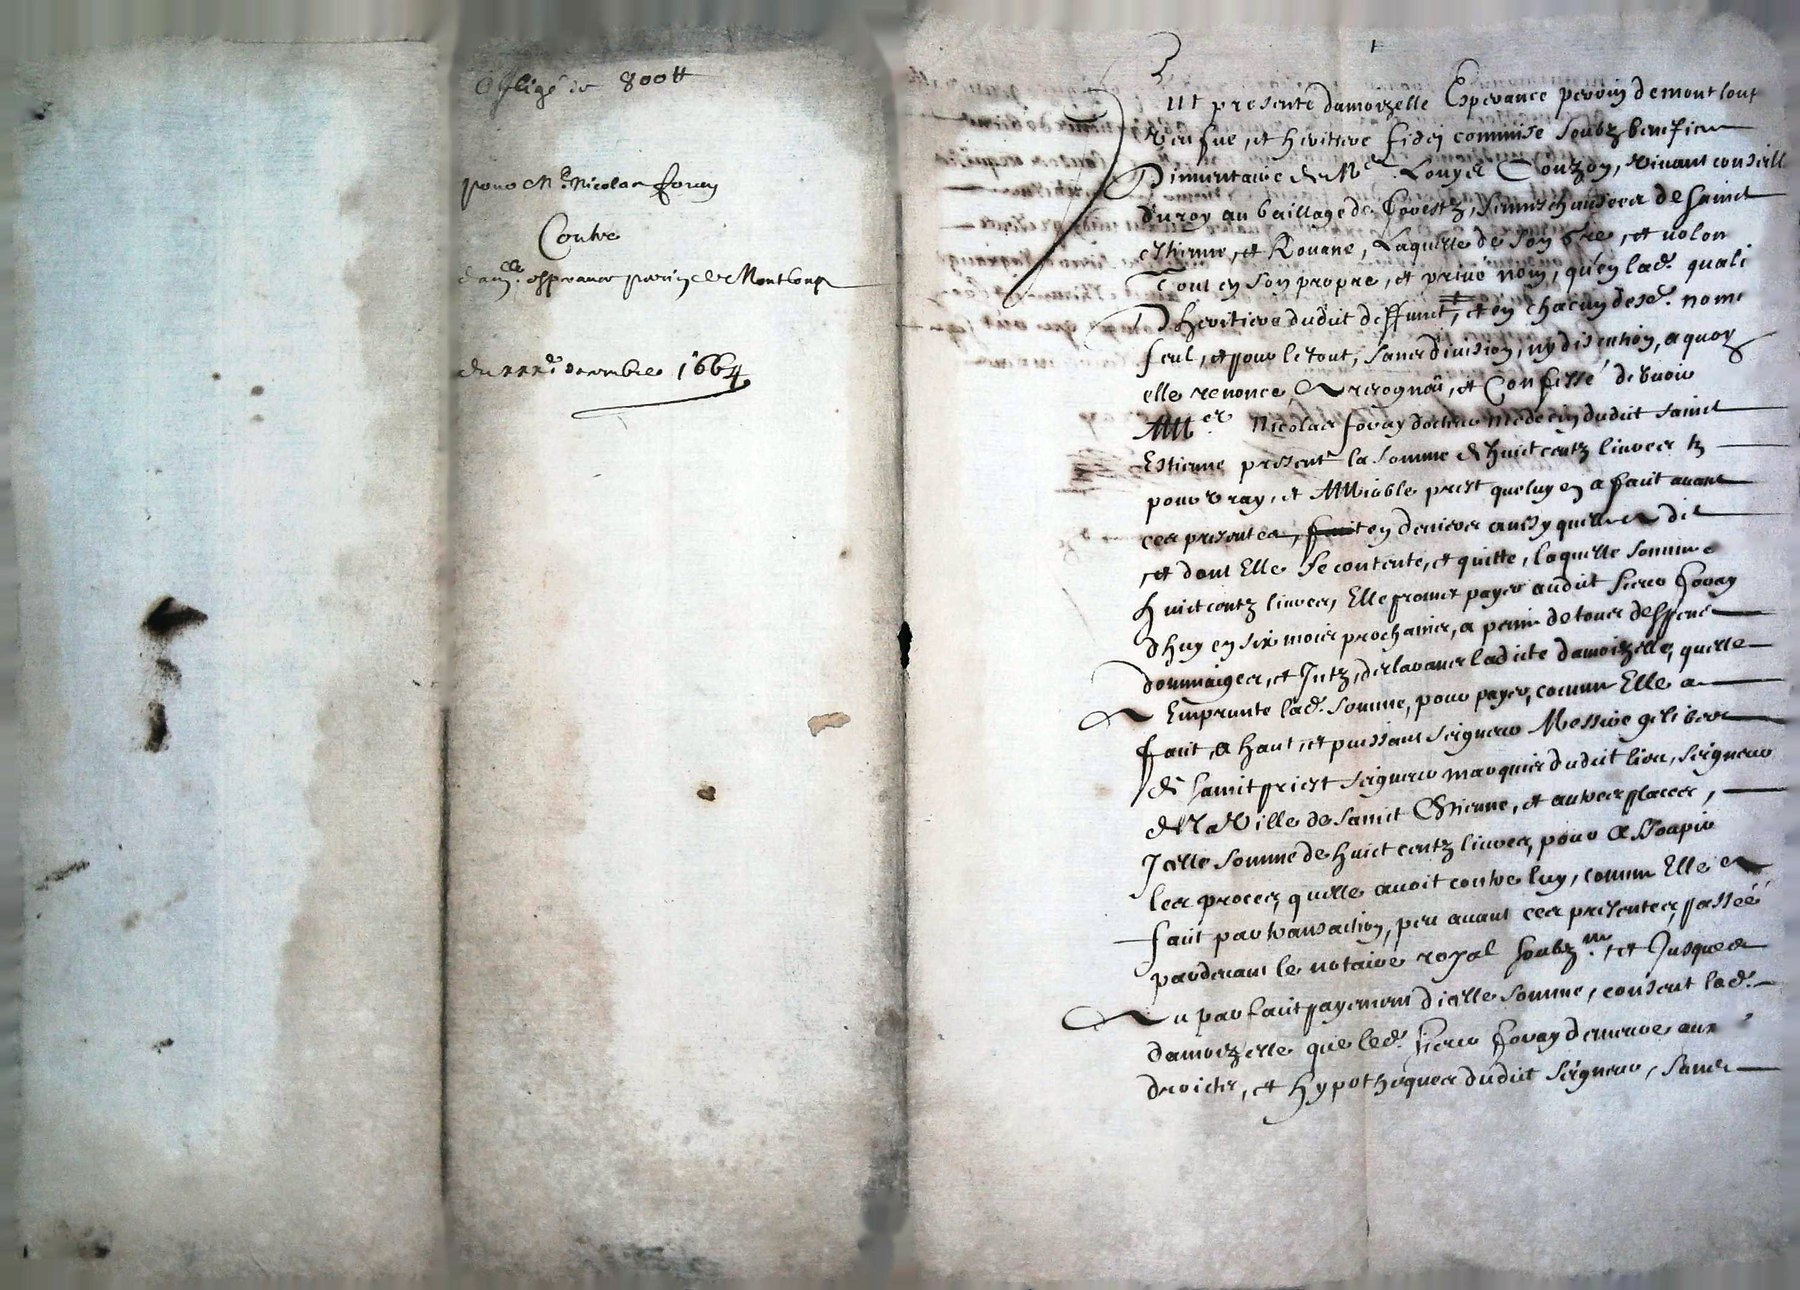 Obligé de 800 lt
pour Me Nicolas foray
Contre
damlle. esperance perrin de Montloup
du xxxe. decembre 1664
Fut presente damoizelle Esperance perrin de montloup
veufve, et heritiere fidei commise soubz benefice
D'inventaire de Me. Louys Couzon, vivant conseill
du roy au bailliage de forestz, senneschaussee de Sainct
esthienne, et Rouane, Laquelle de son gre, et volon
Tout en son propre, et privé nom, qu'en lad. quali
D'heritiere dudict deffunct, et en chacun desd. noms
seul, et pour le tout, sans division, ny discution, a quoy
elle renonce, A recognu, et Confessé debvoir
A Mer Nicolas foray docteur medecin dudict Sainct
Estienne present la somme de huict centz livres tz
pour vray, et AMiable prest que luy en a faict avant
ces presentes, fait en deniers ainsy quelle a dit
et dont Elle se contente, et quitte, laquelle somme
huict centz livres, Elle promet payer audict sieur foray
d'huy en six mois prochains, a peine de tous despens
dommaiges, et Intz, desclarant ladicte damoizelle, quelle
A Emprunté lad. somme, pour payer, comme Elle a
faict, a haut, et puissant seigneur Messire gilibert
de sainct priest seigneur marquis dudict lieu, seigneur
de la Ville de sainct Esthienne, et autres places,
Icelle somme de huict centz livres, pour Assoupir
les proces, quelle avoit contre luy, comme Elle a
faict par transaction, peu avant ces presentes, passée
pardevant le notaire royal soubz.ne, et Jusques
Au parfaict payement d'icelle somme, consent lad.
damoizelle que led. sieur foray demeure aux
droicts, et hypotheques dudict seigneur, sans